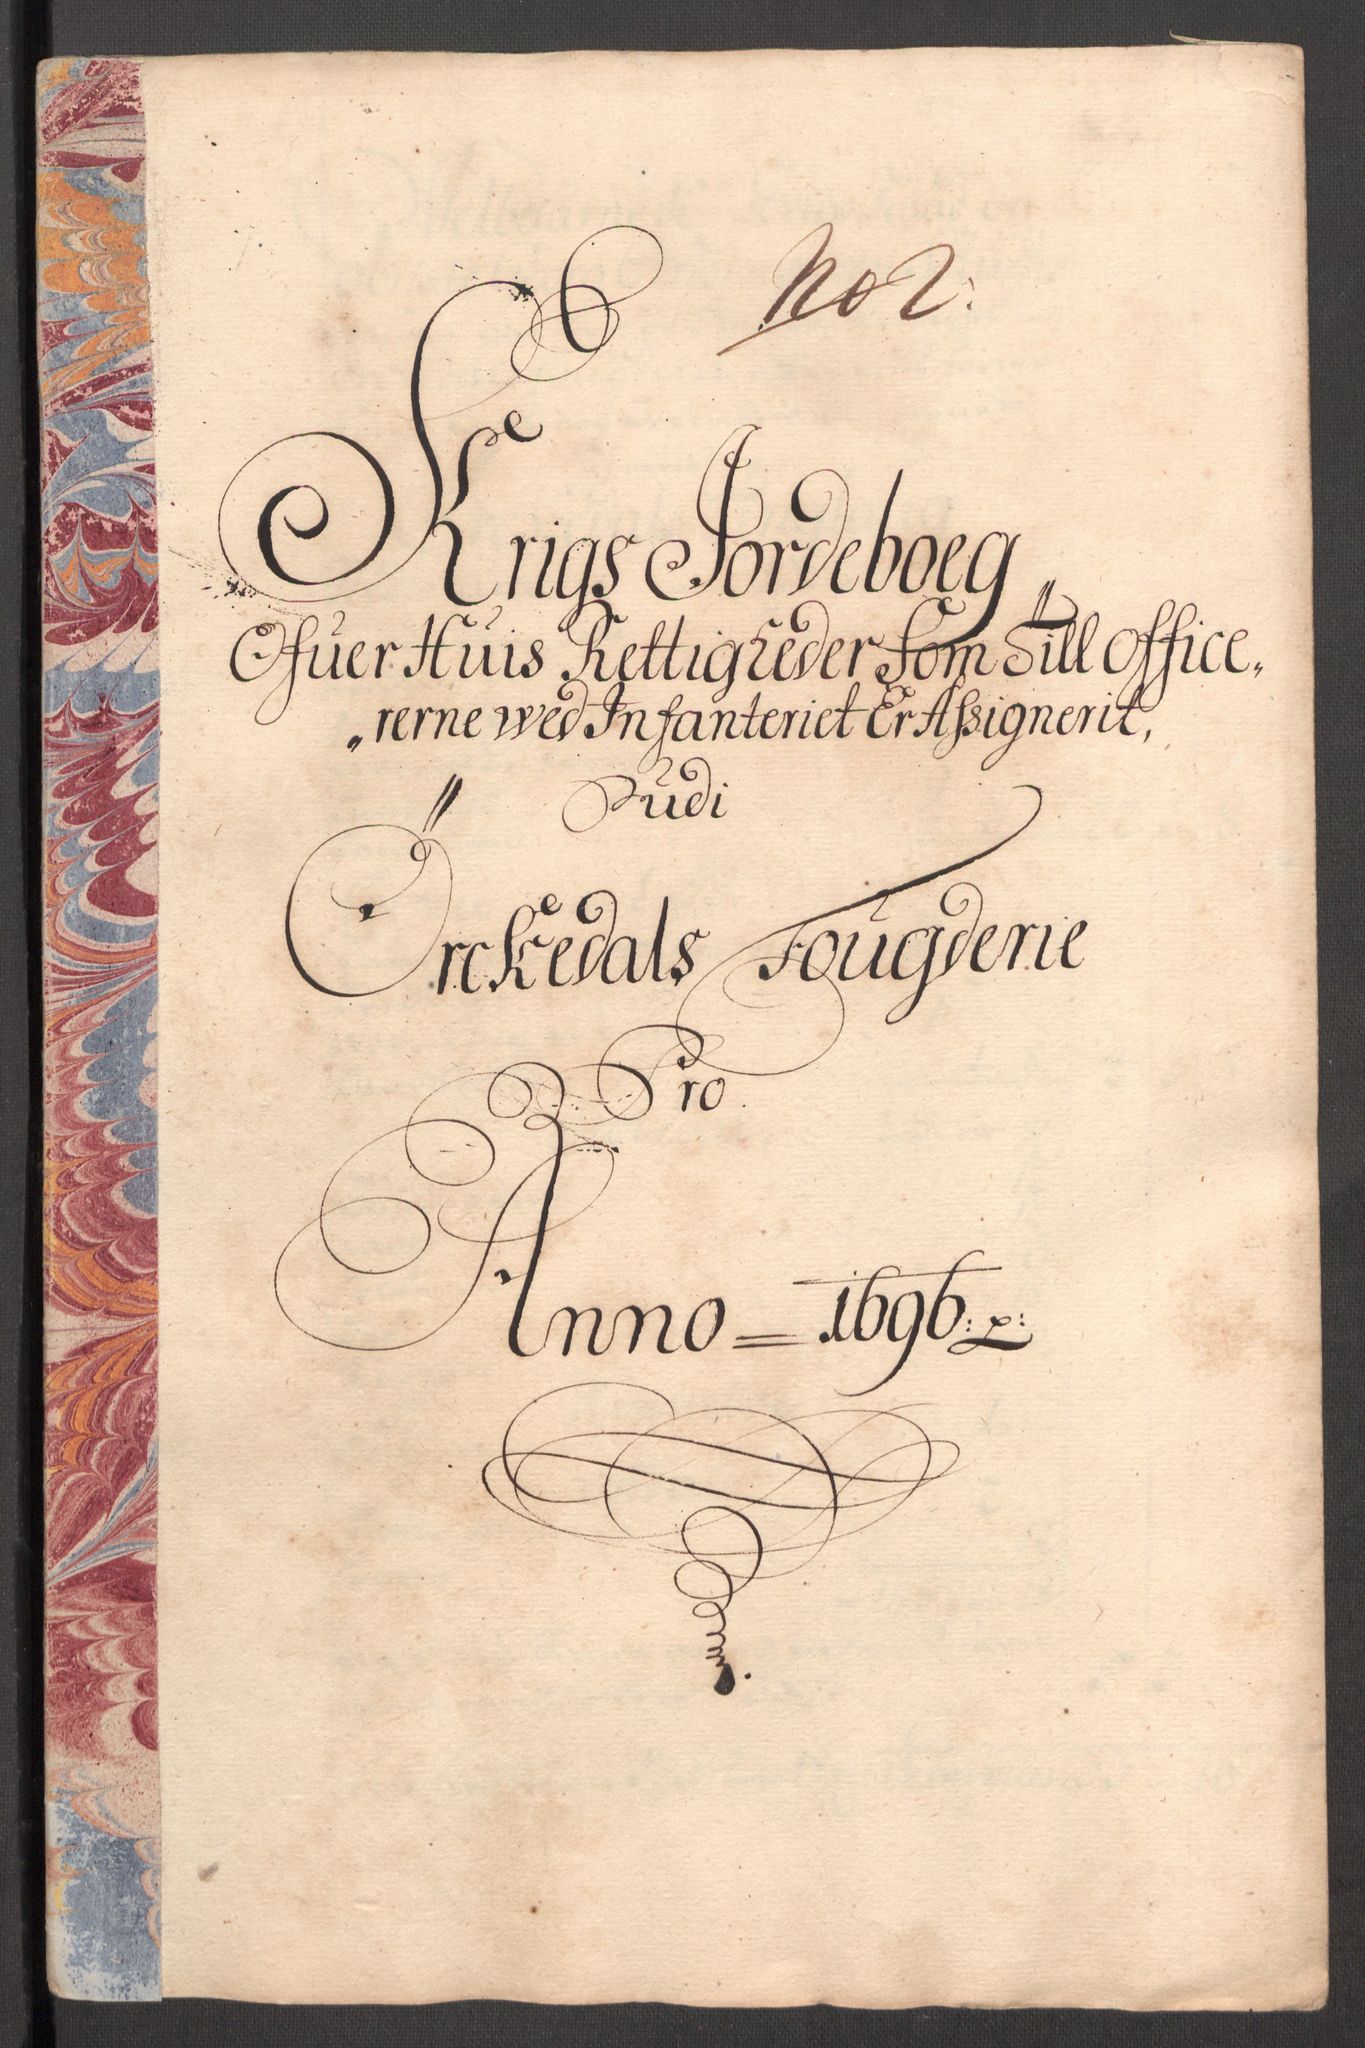 No 2:
Krigs Jordeboeg
Ofuer Huis Rettigheder som Till Office„
„rerne wed Infanteriet Er Assignerit,
Udi
Orckedals Fougderie
Pro
Anno = 1696: